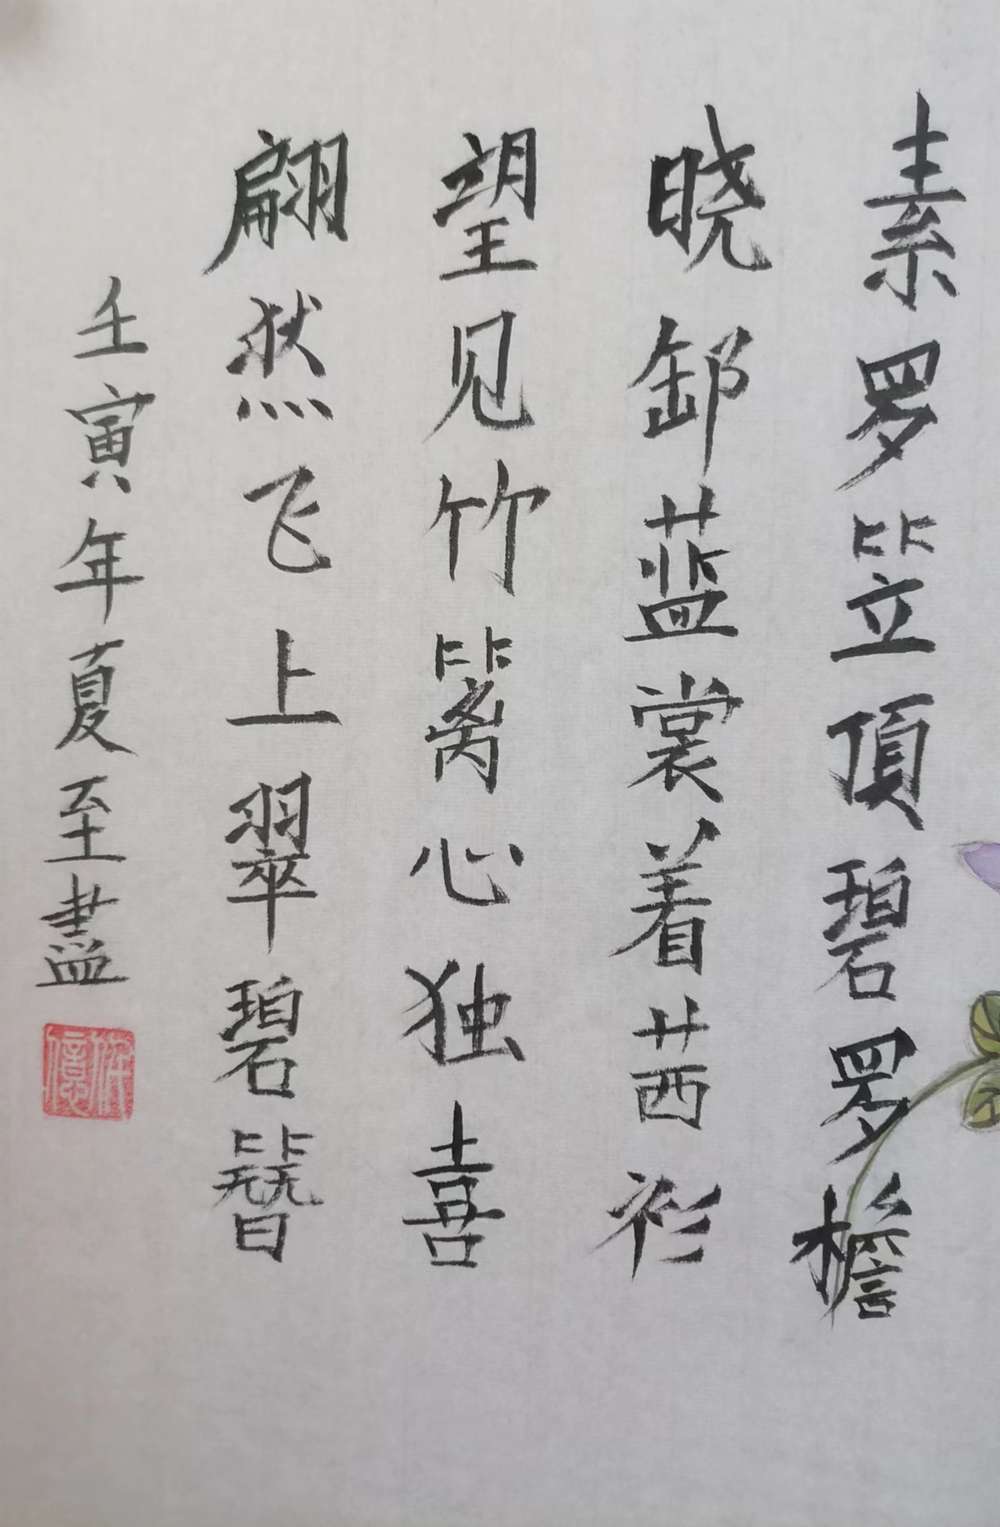 素罗笠頂碧罗檐
晓卸蓝裳着茜衫
望见竹篱心独喜
翩然飞上翠碧簪
壬寅年夏至